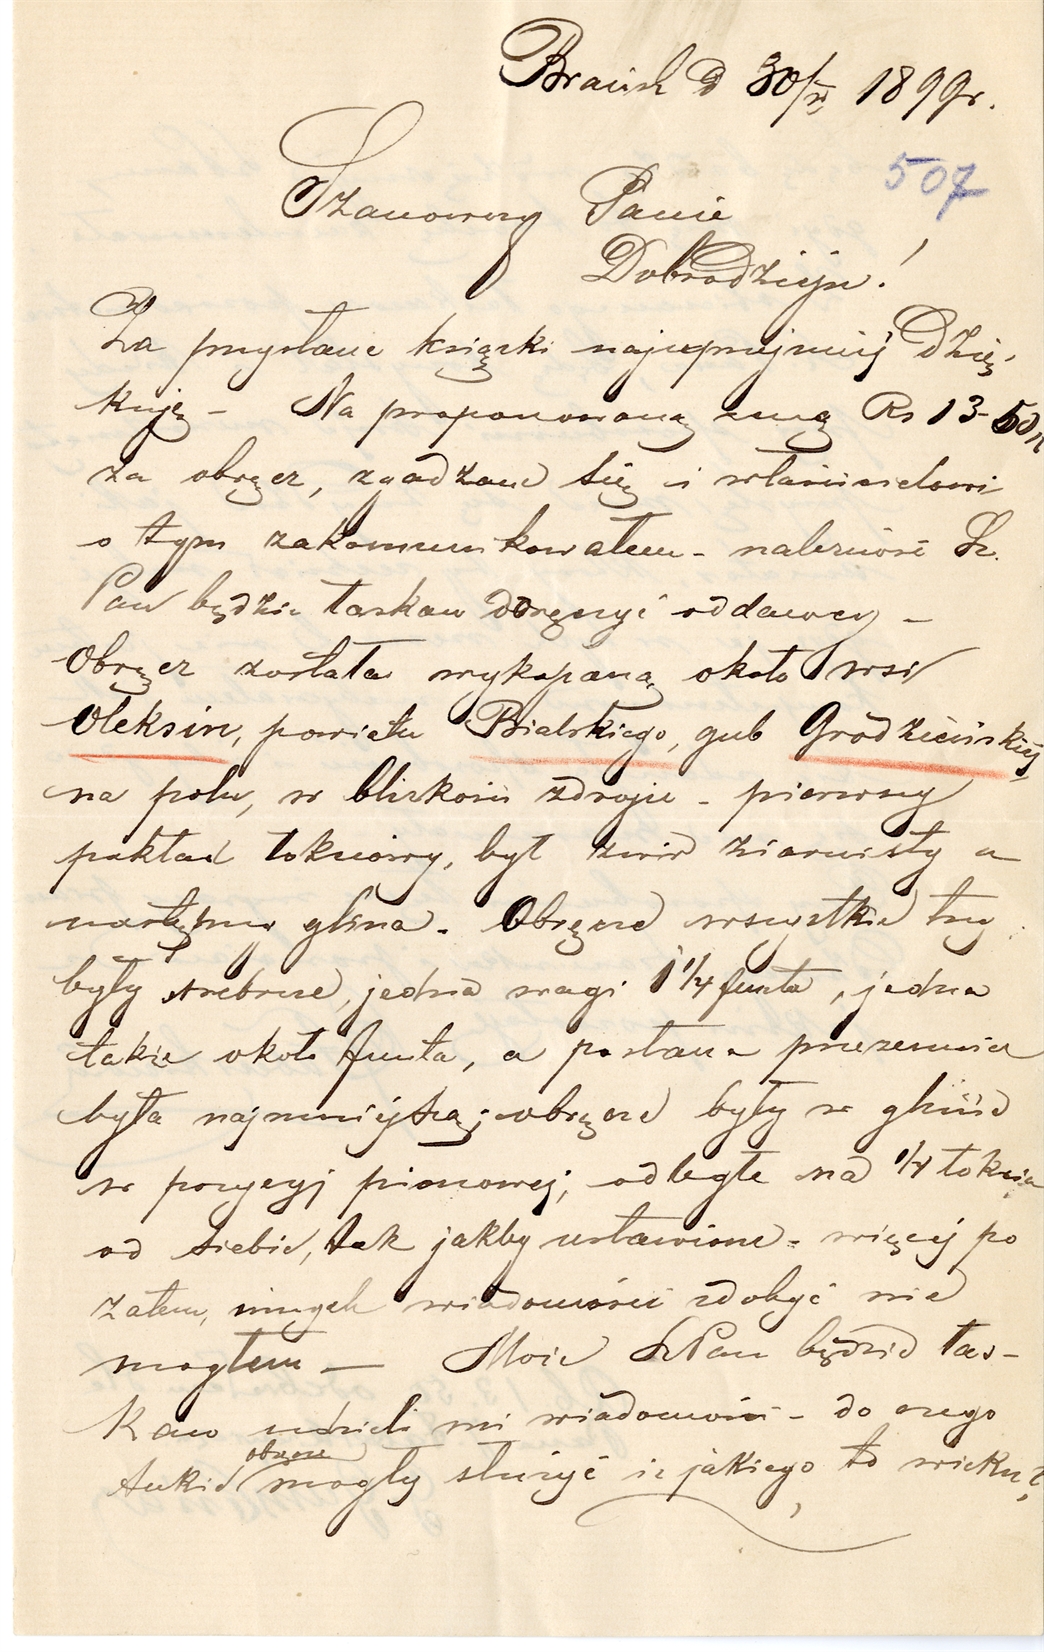 Brańsk d 30/XI 1899r.
507
Szanowny Panie
Dobrodzieju!
Za przysłane książki najuprzejmiej Dzię-
kuję – Na proponowaną cenę Rs 13-50 k
za obręcz, zgadzam się i właścicielowi
o tym zakomunikowałem – należność Sz.
Pan będzie łaskaw doręczyć oddawcy –
Obręcz została wykopaną około wsi
Oleksin, powiatu Bielskiego, gub Grodzieńskiej
na polu, w blizkości zdroju – pierwszy
pokład łokciowy, był żwir ziarnisty a
następny glina. Obręcze wszystkie trzy
były srebrne, jedna wagi 1 1/4 funta, jedna
także około funta, a posłana przezemnie
była najmniejszą; obręcze były w glinie
w pozycyj pionowej, odległe na 1/4 łokcia
od siebie, tak jakby ustawione – więcej po
zatem, innych wiadomości zdobyć nie
mogłem — Może Sz Pan będzie łas-
kaw udzieli mi wiadomości – do czego
takie obręcze mogły służyć i z jakiego to wieku?